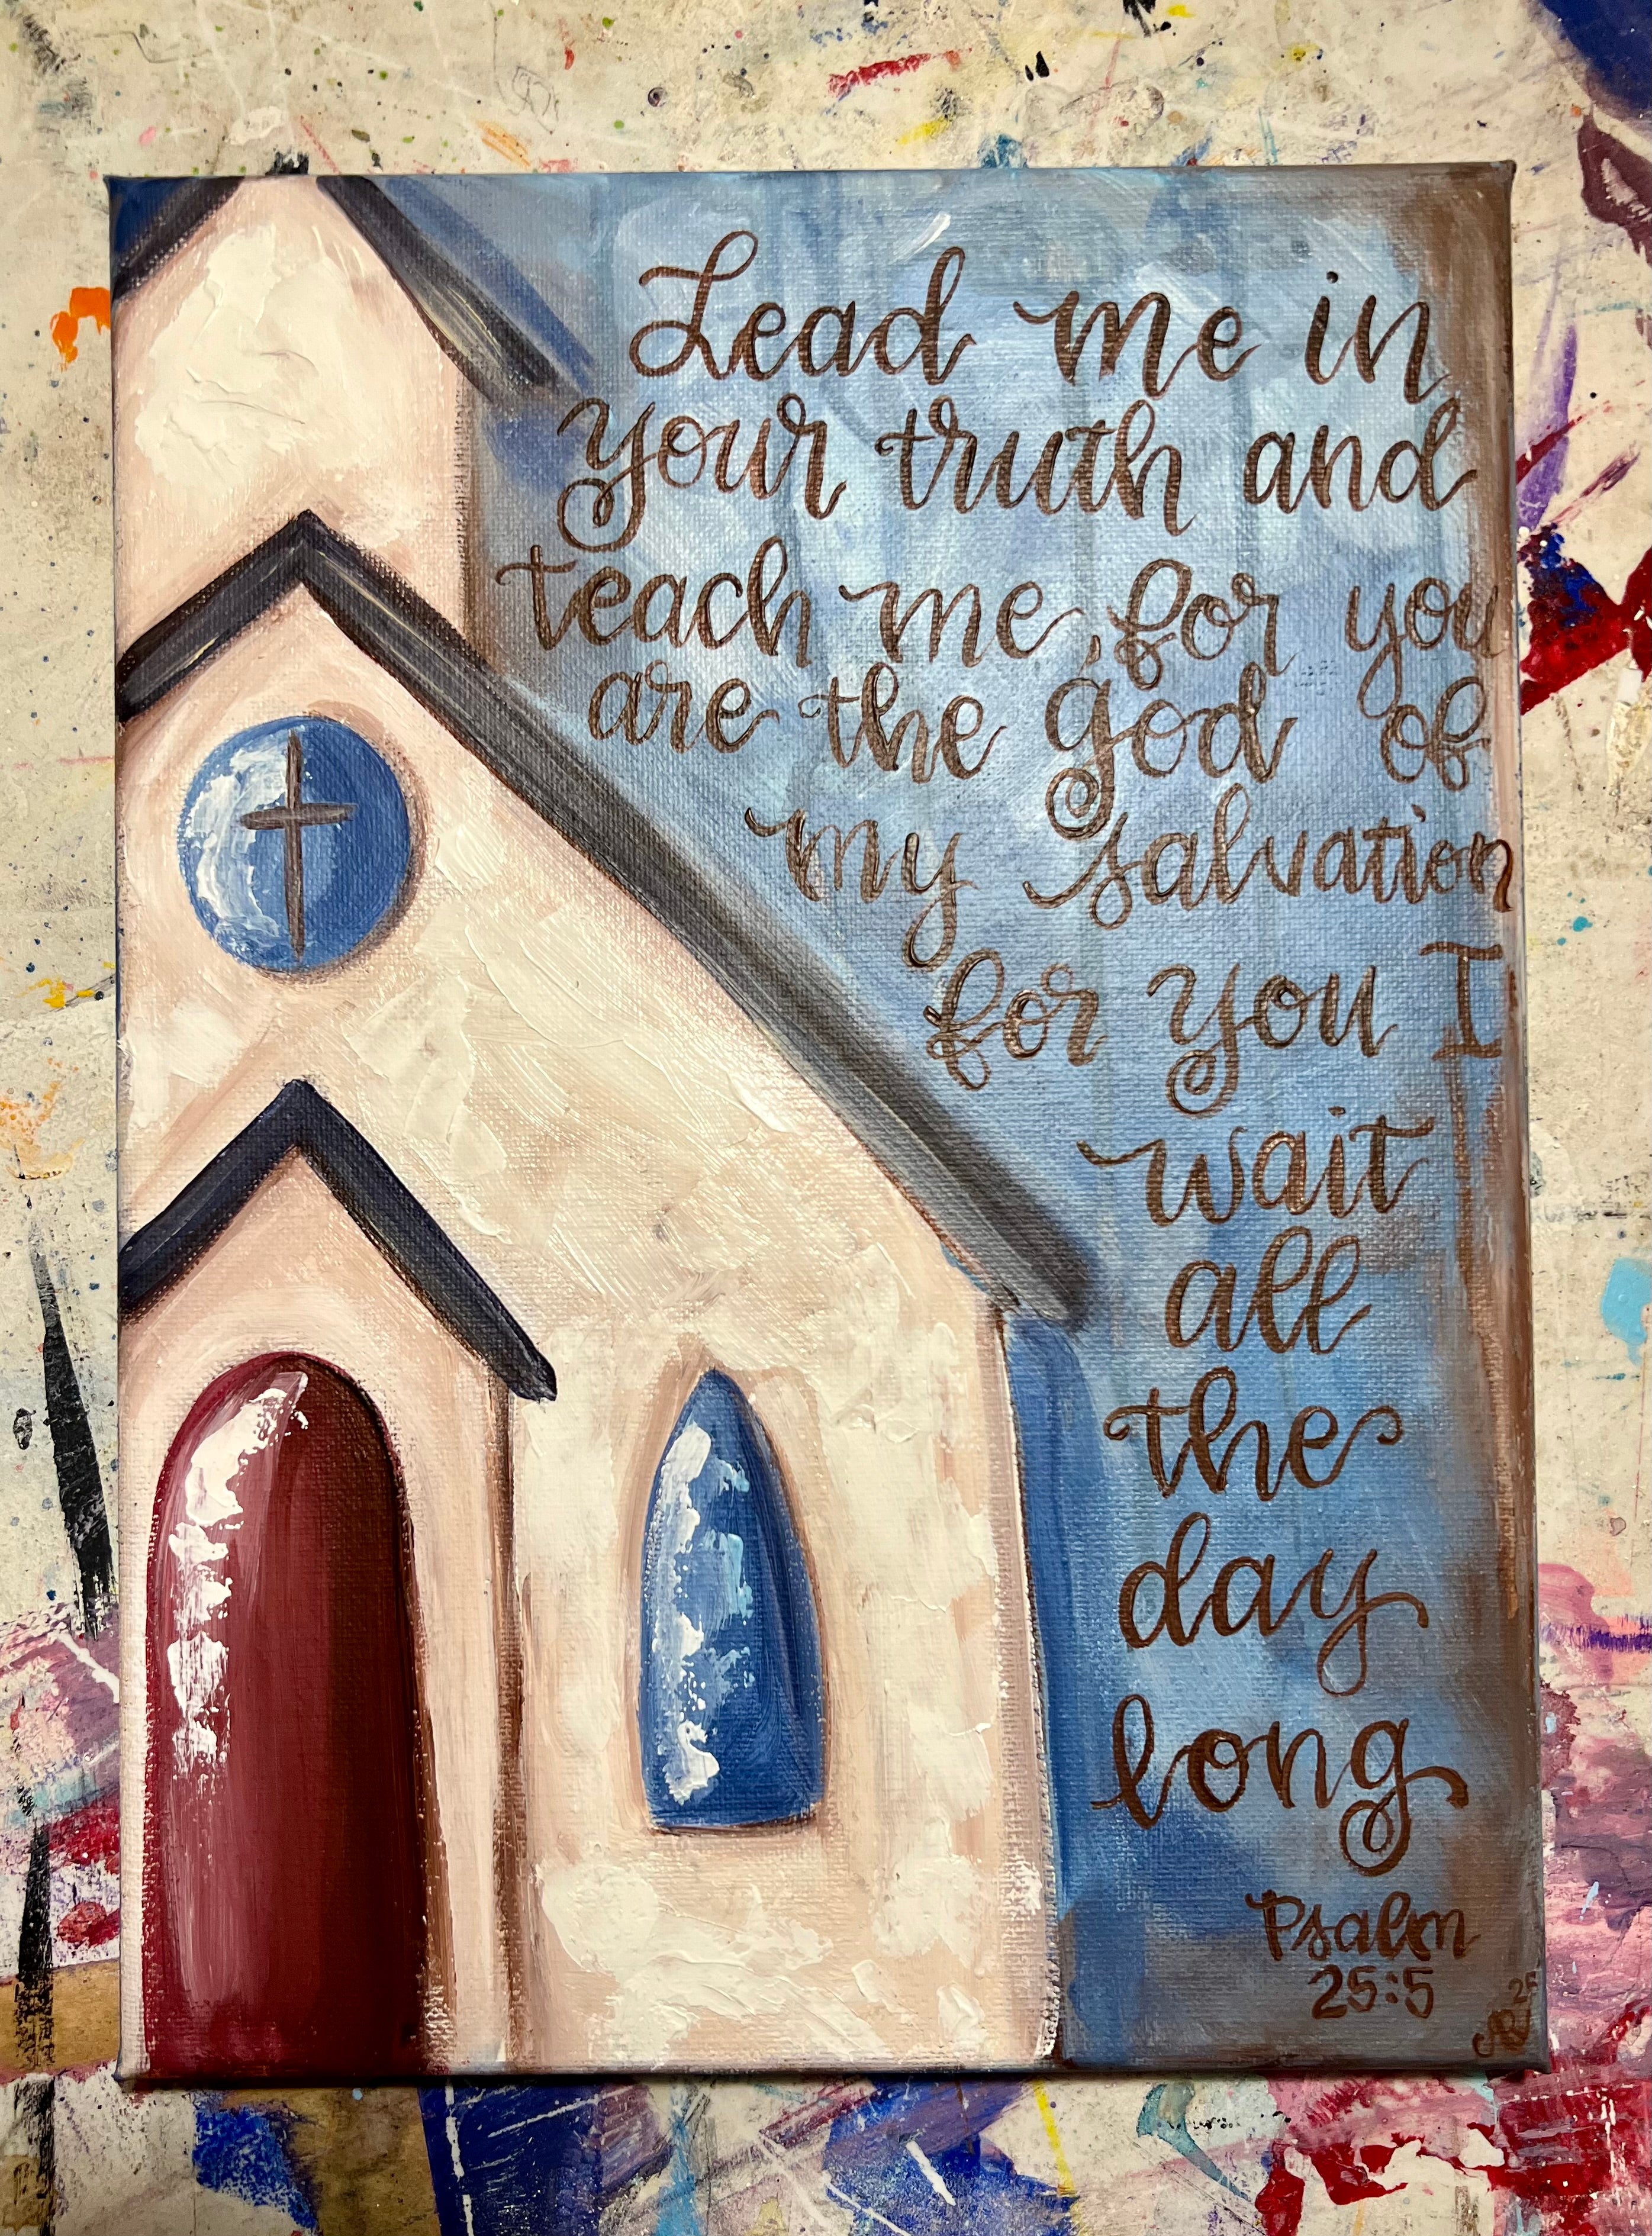 Lead me in
your truth and
teach me, for you
are the god of
my salvation
for you I
wait
all
the
day
long
Psalm
25:5